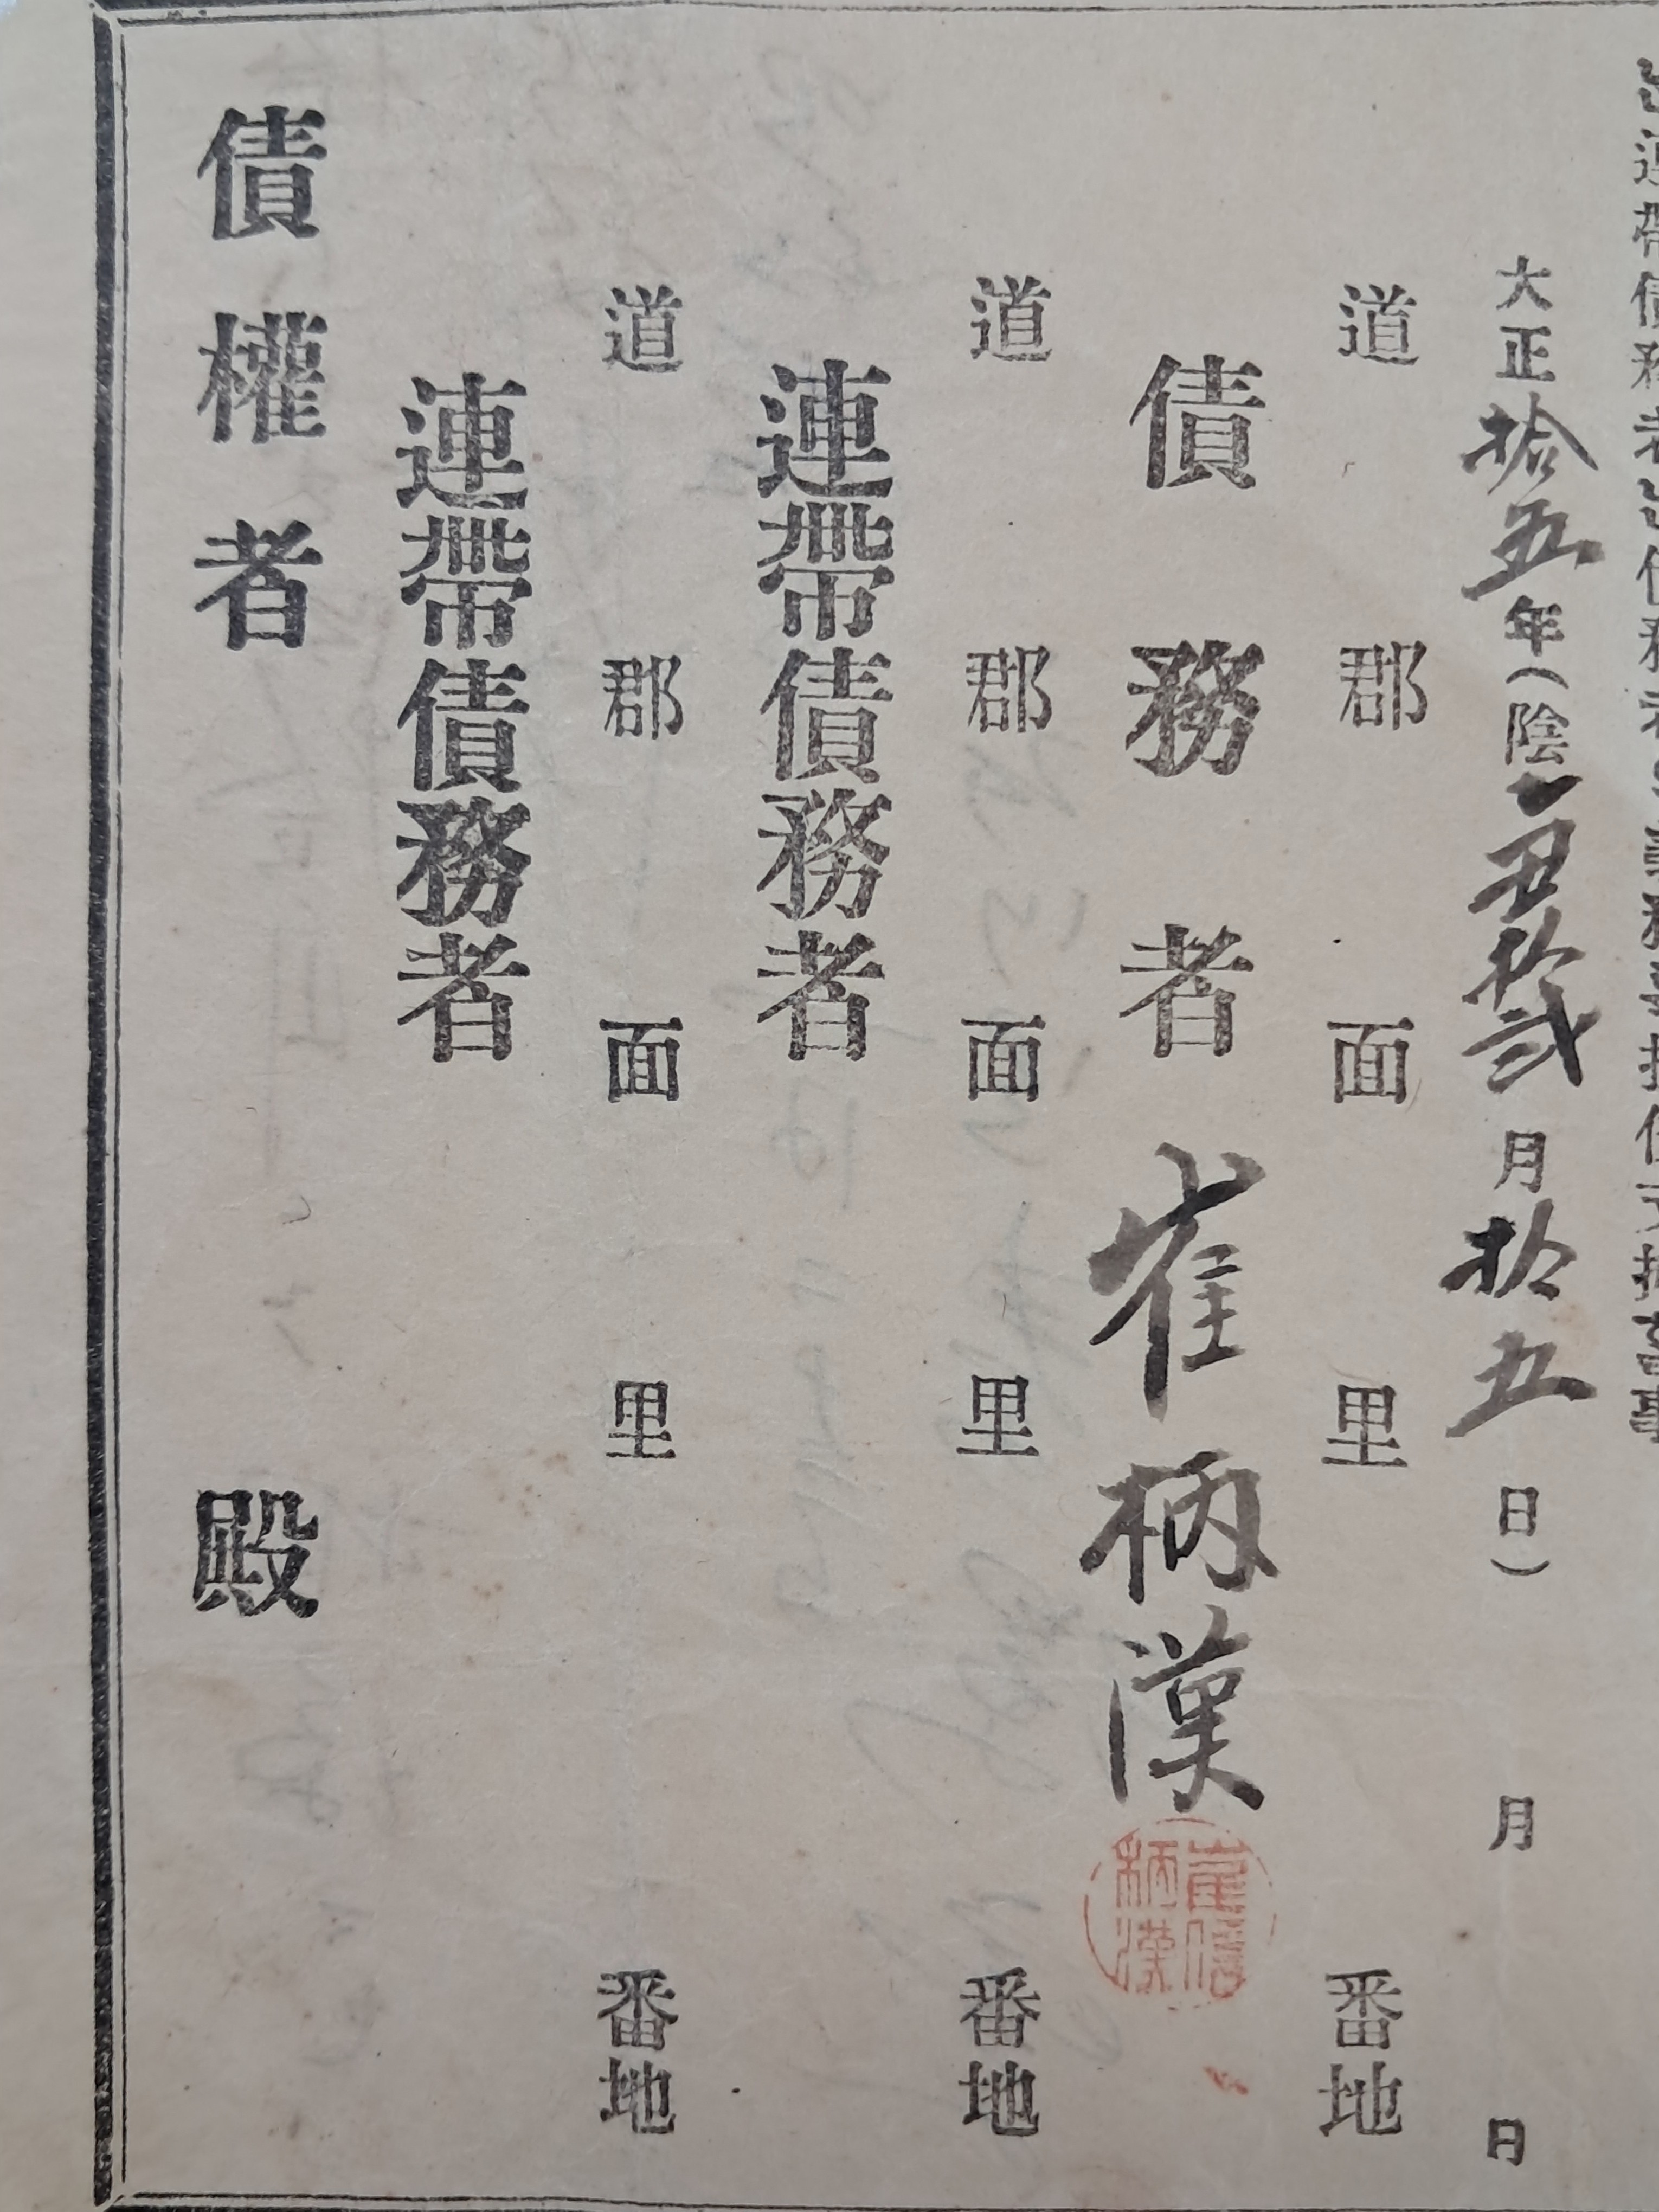 大正拾五年(陰乙丑拾弍月拾五日) 月 日
道 郡 面 里 番地
債務者 崔柄漢
崔信
柄漢
道 郡 面 里 番地
連帶債務者
道 郡 面 里 番地
連帶債務者
債權者 殿